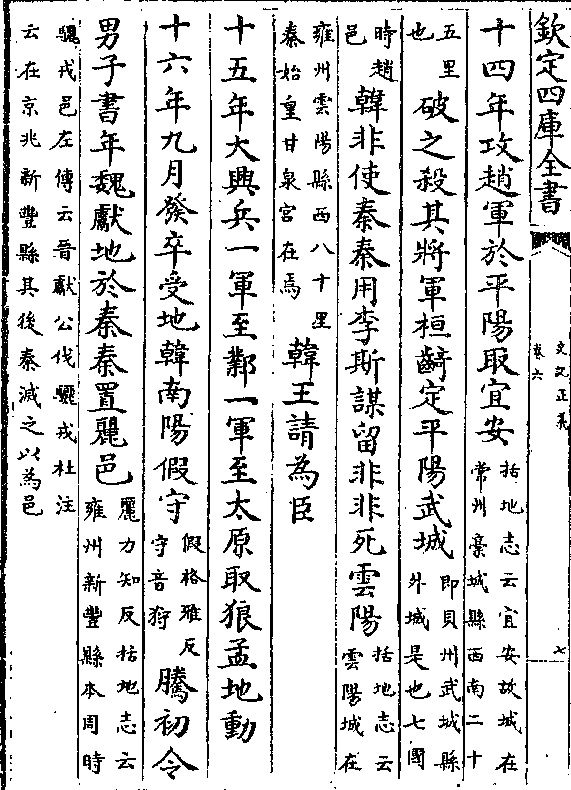 欽定四庫全書
史記正義
卷六
七
十四年攻趙軍於平陽取宜安
括地志云宜安故城在
常州豪城縣西南二十
五里
也
破之殺其將軍桓齮定平陽武城
即貝州武城縣
外城是也七國
時趙
邑
韓非使秦秦用李斯謀留非非死雲陽
括地志云
雲陽城在
雍州雲陽縣西八十里
秦始皇甘泉宮在焉
韓王請為臣
十五年大興兵一軍至鄴一軍至太原取狼孟地動
十六年九月發卒受地韓南陽假守
假格雅反
守音狩
騰初令
男子書年魏獻地於秦秦置麗邑
麗力知反括地志云
雍州新豐縣本周時
驪戎邑左傳云晉獻公伐驪戎杜注
云在京兆新豐縣其後秦滅之以為邑